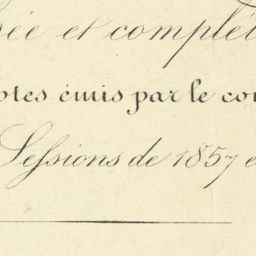 sée et complét
otes émis par le con
Sessions de 1857 e